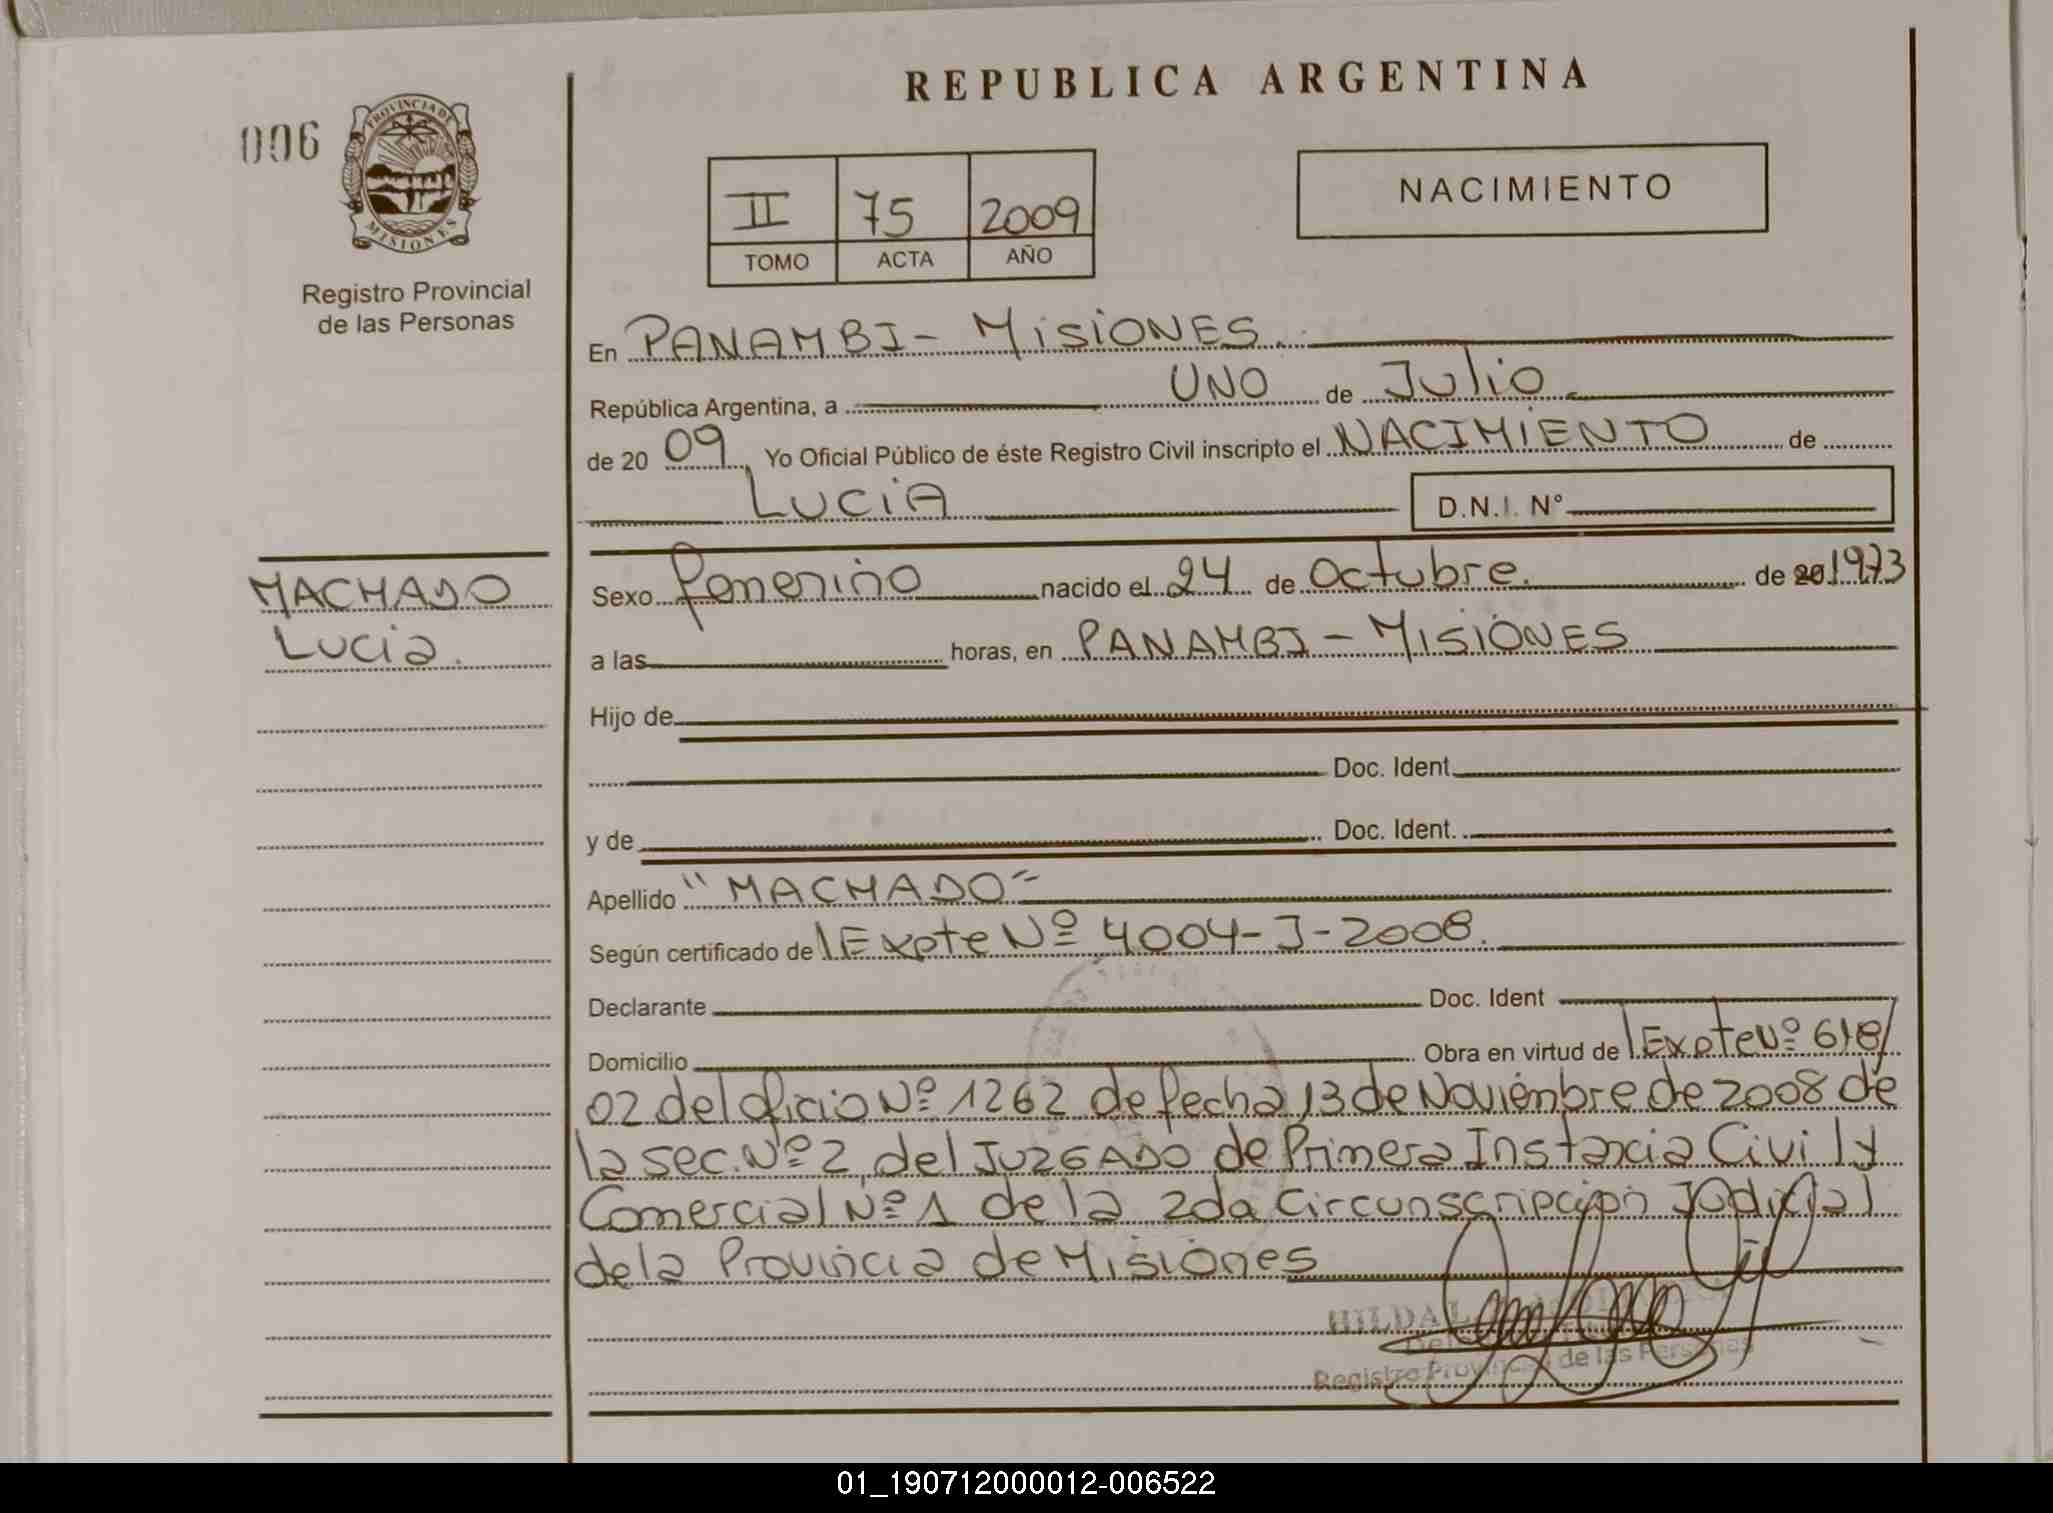 REPUBLICA ARGENTINA
006
PROVINCIA DE
MISIONES
Registro Provincial
de las Personas
II 75 2009
TOMO ACTA AÑO
NACIMIENTO
En PANAMBI - MISIONES
República Argentina, a UNO de Julio
de 20 09, Yo Oficial Público de éste Registro Civil inscripto el NACIMIENTO de
LUCIA D.N.I. Nº
MACHADO
Lucia.
Sexo femenino nacido el 24 de Octubre. de 20 1973
a las horas, en PANAMBI - MISIONES
Hijo de
Doc. Ident.
y de Doc. Ident.
Apellido "MACHADO"
Según certificado de Expte Nº 4004-J-2008.
Declarante Doc. Ident
Domicilio Obra en virtud de Expte Nº 618/
02 del oficio Nº 1262 de fecha 13 de Noviembre de 2008 de
la sec. Nº 2 del JUZGADO de Primera Instancia Civil y
Comercial Nº 1 de la 2da Circunscripcion Judicial
de la Provincia de Misiones
HILDA
Registro Provincial de las Personas
01_190712000012-006522